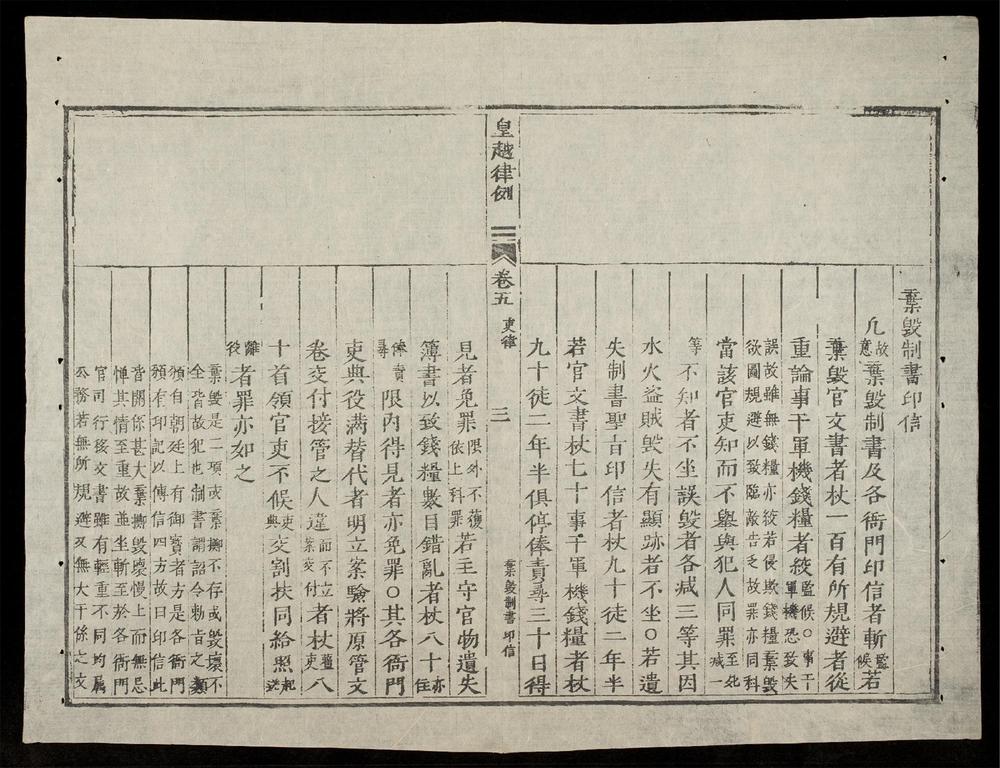 棄毀制書印信
凡故意棄毀制書及各衙門印信者斬監候若
棄毀官文書者杖一百有所規避者從
重論事干軍機錢糧者絞監候○事干軍機恐致失
誤故雖無錢糧亦絞若侵欺錢糧棄毀欲圖規避以致臨敵告乏故罪亦同科
當該官吏知而不舉與犯人同罪至死減一
等不知者不坐誤毀者各减三等其因
水火盗賊毀失有顯跡者不坐○若遺
失制書聖旨印信者杖九十徒二年半
若官文書杖七十事干軍機錢糧者杖
九十徒二年半俱停俸責尋三十日得
皇越律例 卷五 吏律 三 棄毀制書印信
見者免罪限外不獲依上科罪若主守官物遺失
簿書以致錢糧數目錯亂者杖八十亦住
俸責尋限內得見者亦免罪○其各衙門
吏典役满替代者明立案驗將原管文
卷交付接管之人違而不立案交付者杖舊吏八
十首領官吏不候吏典交割扶同給照起送
離役者罪亦如之
棄毀是二項或棄擲不存或毀壞不
全皆故犯也制書謂詔令勅旨之類
頒自朝廷上有御寳者方是各衙門
頒有印記以傳信四方故曰印信此
皆關係甚大棄擲毀壞慢上而無忌
憚其情至重故並坐斬至於各衙門
官司行移文書雖有輕重不同均屬
公務若無所規避又無大干係之文